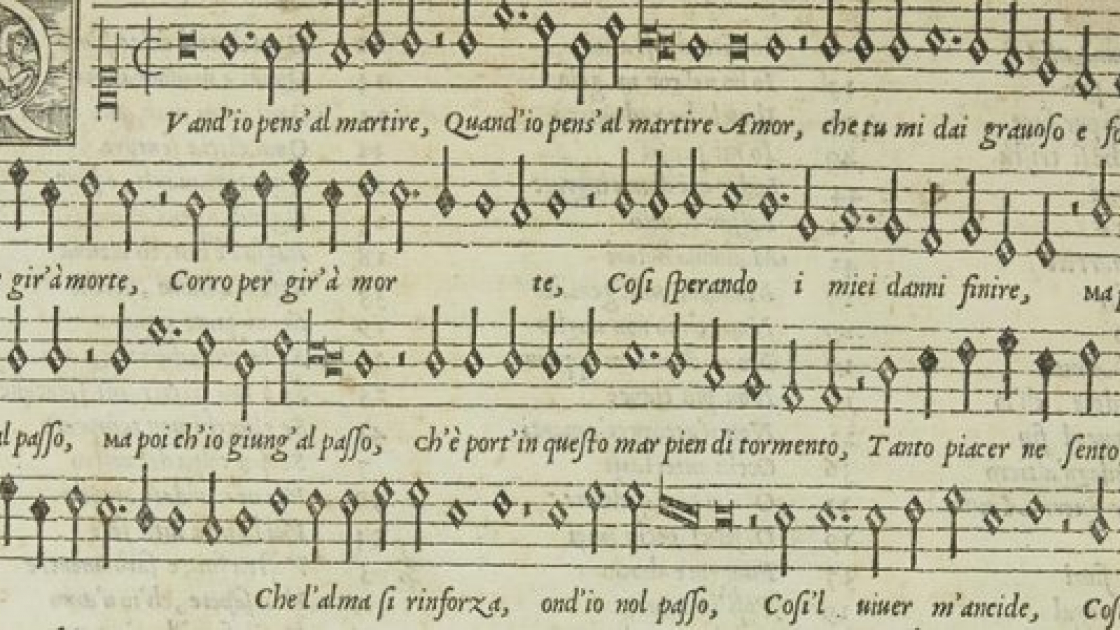 QVand'io pens'al martire, Quand'io pens'al martire Amor, che tu mi dai grauoſo e
gir'à morte, Corro per gir'à mor te, Coſi ſperando i miei danni finire, Ma
al paſſo, Ma poi ch'io giung'al paſſo, Ch'è port'in queſto mar pien di tormento, Tanto piacer ne ſento
Che l'alma ſi rinforza, ond'io nol paſſo, Coſi'l uiuer m'ancide, Coſ